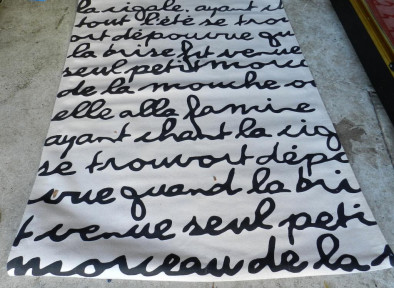 la cigale, ayant ch
tout l'été se trou
ort dépouvue qu
la brise fut venue
seul petit morce
de la mouche o
elle alla famine
ayant chant la cig
se trouvort dépo
vue quand la bri
t venue seul peti
morceau de la